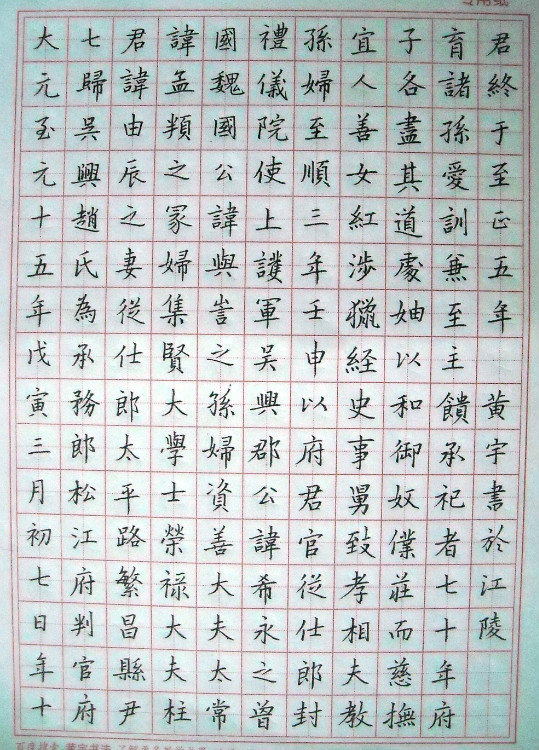 大元至元十五年戊寅三月初七日年十
七歸吳興趙氏為承務郎松江府判官府
君諱由辰之妻從仕郎太平路繁昌縣尹
諱孟頖之冢婦集賢大學士榮祿大夫柱
國魏國公諱與訔之孫婦資善大夫太常
禮儀院使上護軍吳興郡公諱希永之曾
孫婦至順三年壬申以府君官從仕郎封
宜人善女紅涉獵経史事舅致孝相夫教
子各盡其道處妯以和御奴僕莊而慈撫
育諸孫愛訓兼至主饋承祀者七十年府
君終于至正五年 黃宇書於江陵